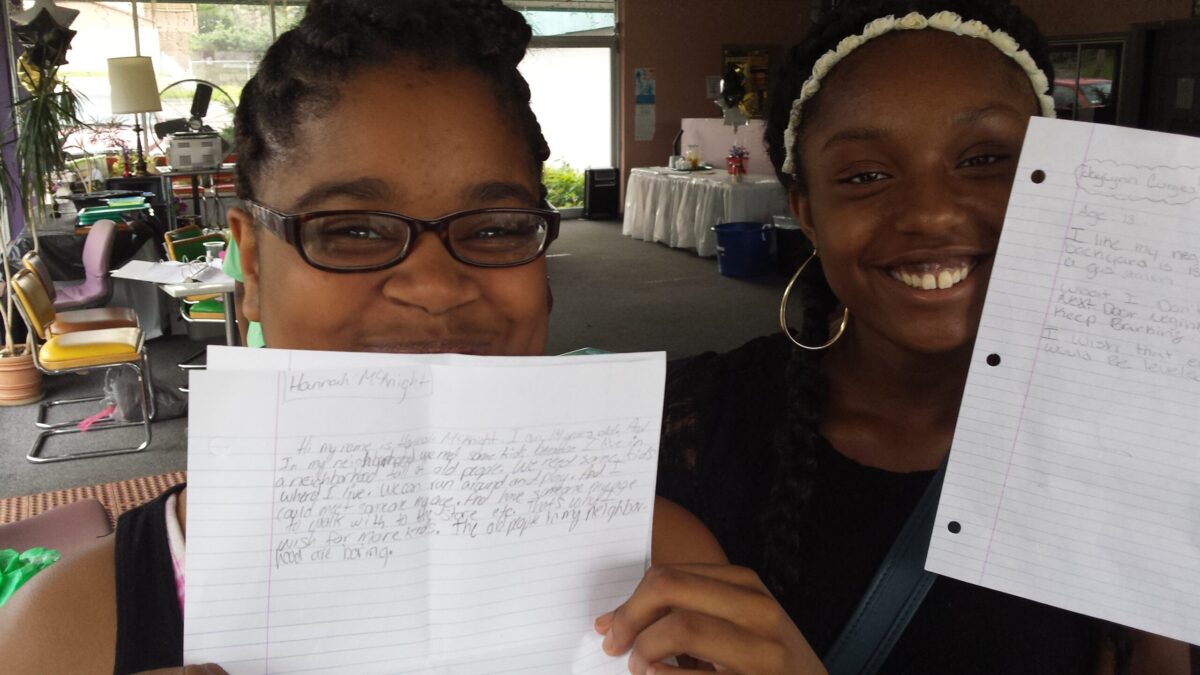 Hannah McKnight
Hi my name is Hannah McKnight. I am 14 years old. And
In my neighborhood we need some kids because I live in
a neighborhod full of old people. We need some kids
where I live. We can run around and play. And I
could meet someone my age. And have someone my age
to walk with to the store etc. That's why I
wish for more kids. The old people in my neighbor-
hood are boring.
Age 13
I like my
backyard is
a gas station
What I Don
Next Door Neighb
Keep Barking
I wish that
would be